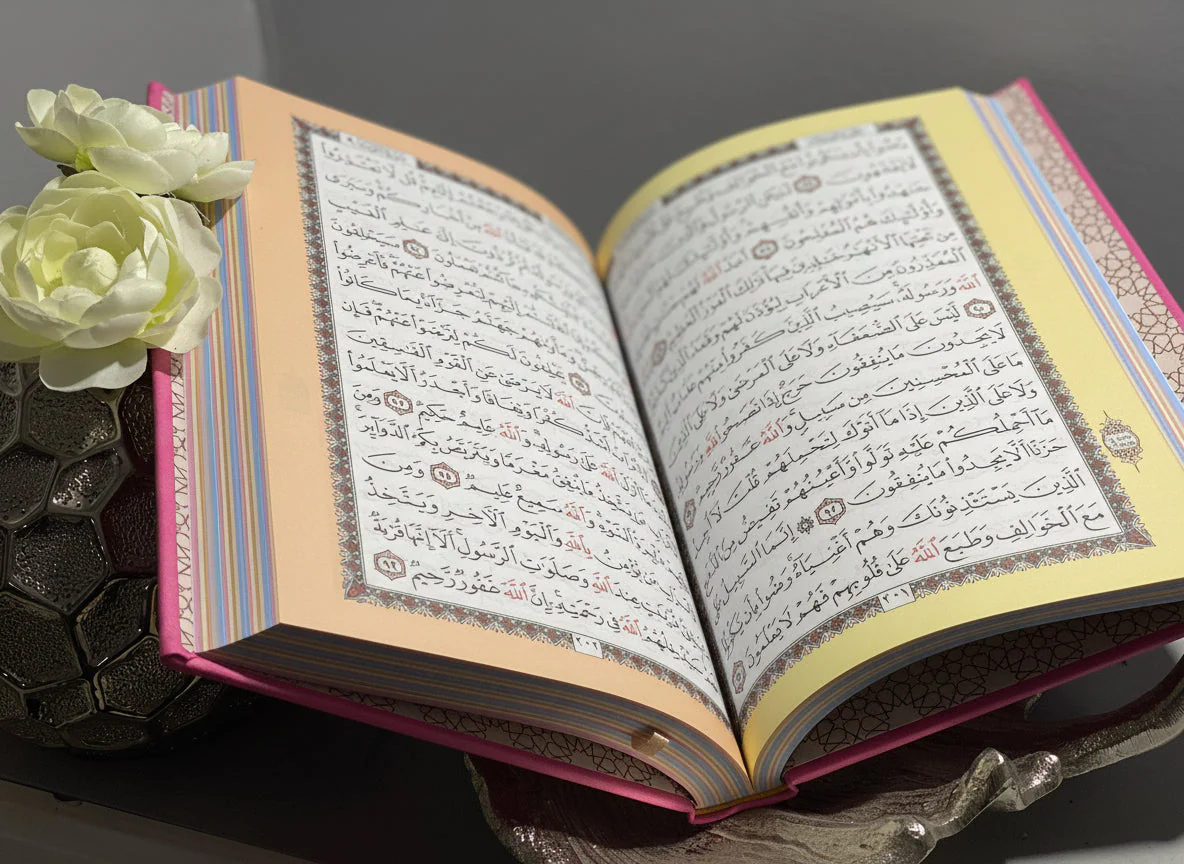 لَا يَفْقَهُونَ
جَٰهَدُوا۟ بِأَمْوَٰلِهِمْ وَأَنفُسِهِمْ وَأُو۟لَٰٓئِكَ
وَأُو۟لَٰٓئِكَ هُمُ ٱلْمُفْلِحُونَ ٨٨ أَعَدَّ ٱللَّهُ لَهُمْ
مِن تَحْتِهَا ٱلْأَنْهَٰرُ خَٰلِدِينَ فِيهَا ذَٰلِكَ ٱلْفَوْزُ ٱلْعَظِيمُ
ٱلْمُعَذِّرُونَ مِنَ ٱلْأَعْرَابِ لِيُؤْذَنَ لَهُمْ وَقَعَدَ ٱلَّذِينَ
ٱللَّهَ وَرَسُولَهُۥ سَيُصِيبُ ٱلَّذِينَ كَفَرُوا۟ مِنْهُمْ عَذَابٌ
٩٠ لَّيْسَ عَلَى ٱلضُّعَفَآءِ وَلَا عَلَى ٱلْمَرْضَىٰ وَلَا عَلَى
لَا يَجِدُونَ مَا يُنفِقُونَ حَرَجٌ إِذَا نَصَحُوا۟ لِلَّهِ وَرَسُولِهِۦ
مَا عَلَى ٱلْمُحْسِنِينَ مِن سَبِيلٍ وَٱللَّهُ غَفُورٌ رَّحِيمٌ
وَلَا عَلَى ٱلَّذِينَ إِذَا مَآ أَتَوْكَ لِتَحْمِلَهُمْ قُلْتَ لَآ أَجِدُ
مَآ أَحْمِلُكُمْ عَلَيْهِ تَوَلَّوا۟ وَّأَعْيُنُهُمْ تَفِيضُ مِنَ ٱلدَّمْعِ
حَزَنًا أَلَّا يَجِدُوا۟ مَا يُنفِقُونَ ٩٢ إِنَّمَا ٱلسَّبِيلُ عَلَى
ٱلَّذِينَ يَسْتَـْٔذِنُونَكَ وَهُمْ أَغْنِيَآءُ رَضُوا۟ بِأَن يَكُونُوا۟
مَعَ ٱلْخَوَالِفِ وَطَبَعَ ٱللَّهُ عَلَىٰ قُلُوبِهِمْ فَهُمْ لَا يَعْلَمُونَ ٩٣
٢٠١
إِلَيْهِمْ قُل لَّا تَعْتَذِرُوا۟
ٱللَّهُ مِنْ أَخْبَارِكُمْ وَسَيَرَى
تُرَدُّونَ إِلَىٰ عَٰلِمِ ٱلْغَيْبِ
كُنتُمْ تَعْمَلُونَ ٩٤ سَيَحْلِفُونَ
ٱنقَلَبْتُمْ إِلَيْهِمْ لِتُعْرِضُوا۟ عَنْهُمْ فَأَعْرِضُوا۟
وَمَأْوَىٰهُمْ جَهَنَّمُ جَزَآءًۢ بِمَا كَانُوا۟
يَحْلِفُونَ لَكُمْ لِتَرْضَوْا۟ عَنْهُمْ فَإِن
ٱللَّهَ لَا يَرْضَىٰ عَنِ ٱلْقَوْمِ ٱلْفَٰسِقِينَ
أَشَدُّ كُفْرًا وَنِفَاقًا وَأَجْدَرُ أَلَّا يَعْلَمُوا۟
أَنزَلَ ٱللَّهُ عَلَىٰ رَسُولِهِۦ وَٱللَّهُ عَلِيمٌ حَكِيمٌ ٩٧ وَمِنَ
يَتَّخِذُ مَا يُنفِقُ مَغْرَمًا وَيَتَرَبَّصُ بِكُمُ ٱلدَّوَآئِرَ
ٱلسَّوْءِ وَٱللَّهُ سَمِيعٌ عَلِيمٌ ٩٨ وَمِنَ
مَن يُؤْمِنُ بِٱللَّهِ وَٱلْيَوْمِ ٱلْءَاخِرِ وَيَتَّخِذُ
عِندَ ٱللَّهِ وَصَلَوَٰتِ ٱلرَّسُولِ أَلَآ إِنَّهَا قُرْبَةٌ
سَيُدْخِلُهُمُ ٱللَّهُ فِى رَحْمَتِهِۦٓ إِنَّ ٱللَّهَ غَفُورٌ رَّحِيمٌ ٩٩
٢٠٢